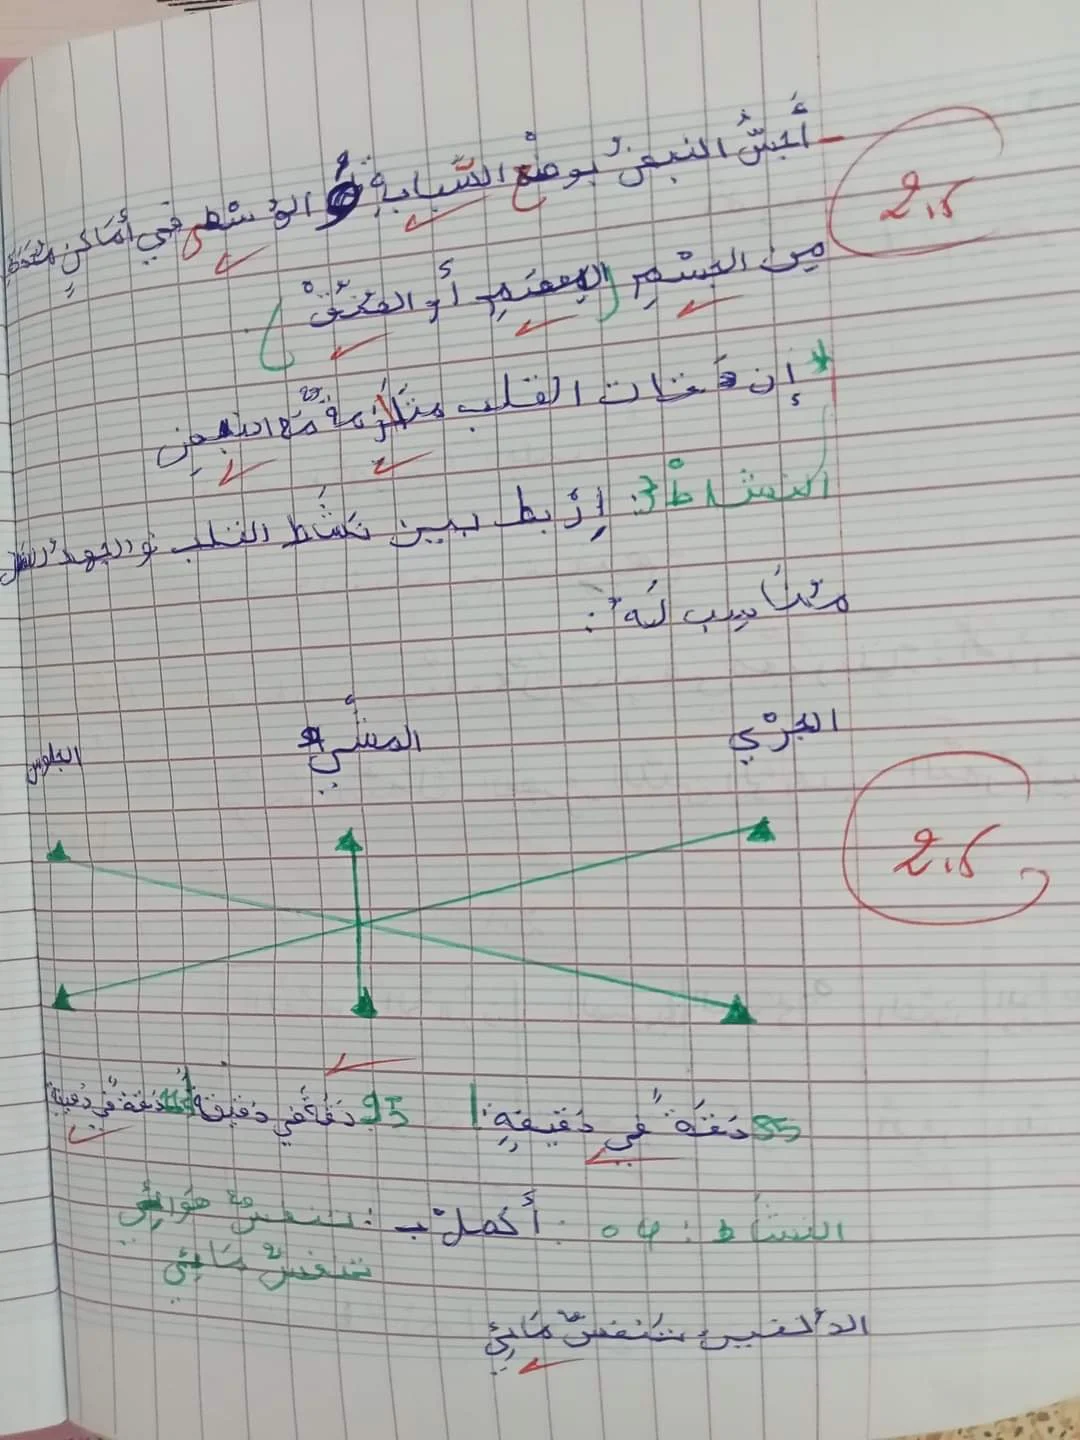 أَجُسُّ النبضُ بوضْع السَّبابةِ و الوُسْطى في أَمَاكنٍ
2,5
مِن الجسْمِ (المِعصَمِ أَو العُنُقْ)
* إن دَقات القلب مُتَلازِمةٌ مَع النبضِ
النشاطْ 3: اِرْبط بين نَشُاط القلب و الجهد
مُنَاسِب لَهُ:
الجرْي المشْي الجلوس
2,5
85 دَقَةً في دَقيقةٍ 95 دَقةً في دَقيقة 115 دَقةً في دَقيقةٍ
النشاط: 04: أَكملْ ب: تنفسٌ هَوائِي
تنفسٌ مَائِي
الدُلفين تنفسٌ مَائِي